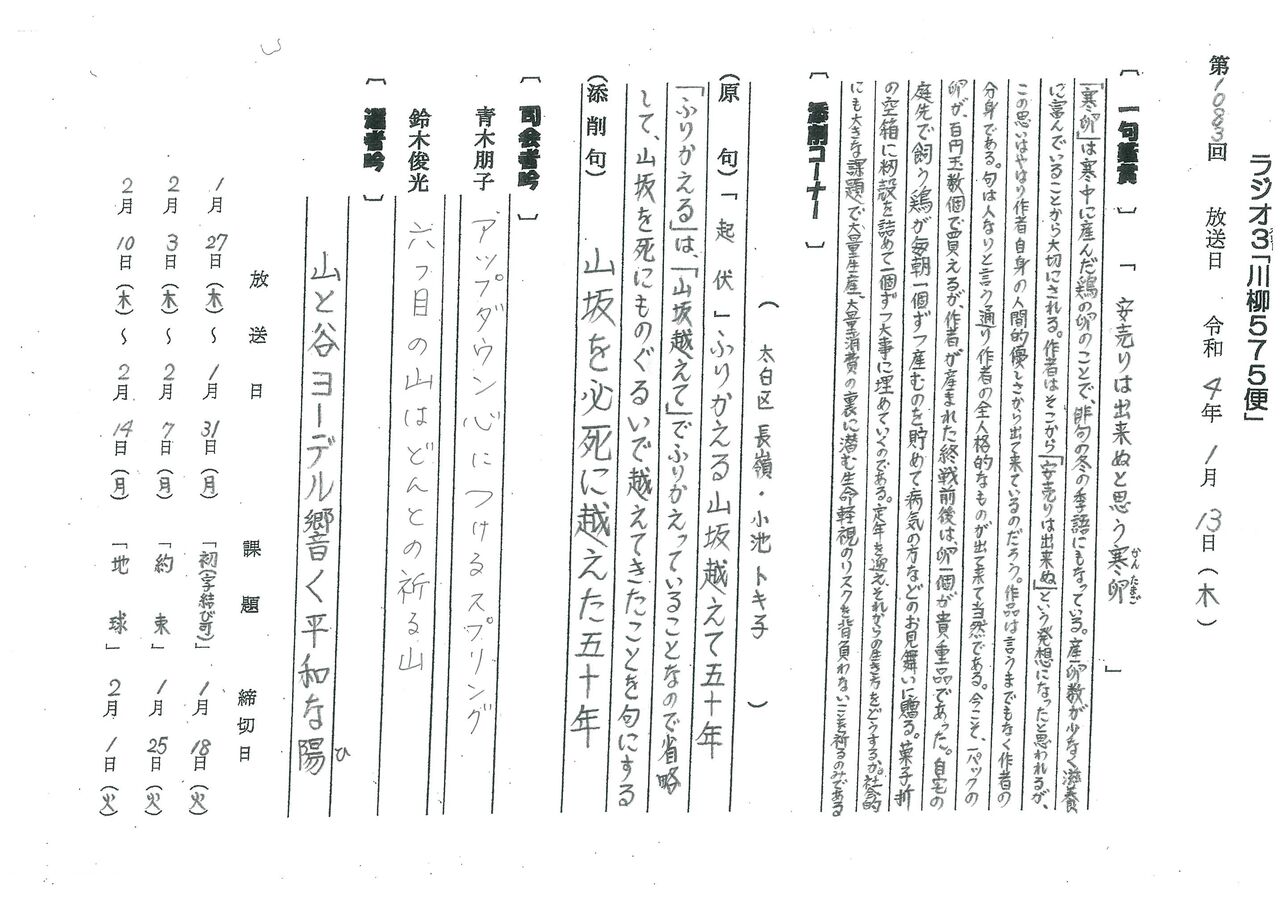 ラジオ3「川柳575便」
第1083回 放送日 令和4年1月13日(木)
〔一句鑑賞〕「安売りは出来ぬと思う寒卵」
かんたまご
「寒卵」は寒中に産んだ鶏の卵のことで、俳句の冬の季語にもなっている。産卵数が少なく滋養
に富んでいることから大切にされる。作者はそこから「安売りは出来ぬ」という発想になったと思われるが、
この思いはやはり作者自身の人間的優しさから出て来ているのだろう。作品は言うまでもなく作者の
分身である。句は人なりと言う通り作者の全人格的なものが出て来て当然である。今こそ、一パックの
卵が、百円玉数個で買えるが、作者が産まれた終戦前後は、卵一個が貴重品であった。自宅の
庭先で飼う鶏が毎朝一個ずつ産むのを貯めて病気の方などのお見舞いに贈る。菓子折
の空箱に籾殻を詰めて一個ずつ大事に埋めていくのである。定年を迎え、それからの生き方をどうするか。社会的
にも大きな課題で大量生産、大量消費の裏に潜む生命軽視のリスクを背負わないことを祈るのみである
〔添削コーナー〕
(太白区長嶺・小池トキ子)
(原句)「起伏」ふりかえる山坂越えて五十年
「ふりかえる」は、「山坂越えて」でふりかえっていることなので省略
して、山坂を死にものぐるいで越えてきたことを句にする
(添削句) 山坂を必死に越えた五十年
〔司会者吟〕
青木朋子 アップダウン心につけるスプリング
鈴木俊光 六つ目の山はどんとの祈る山
〔選者吟〕
山と谷ヨーデル響く平和な陽
ひ
放送日 課題 締切日
1月27日(木)〜1月31日(月)「初(字結び可)」1月18日(火)
2月3日(木)〜2月7日(月)「約束」1月25日(火)
2月10日(木)〜2月14日(月)「地球」2月1日(火)